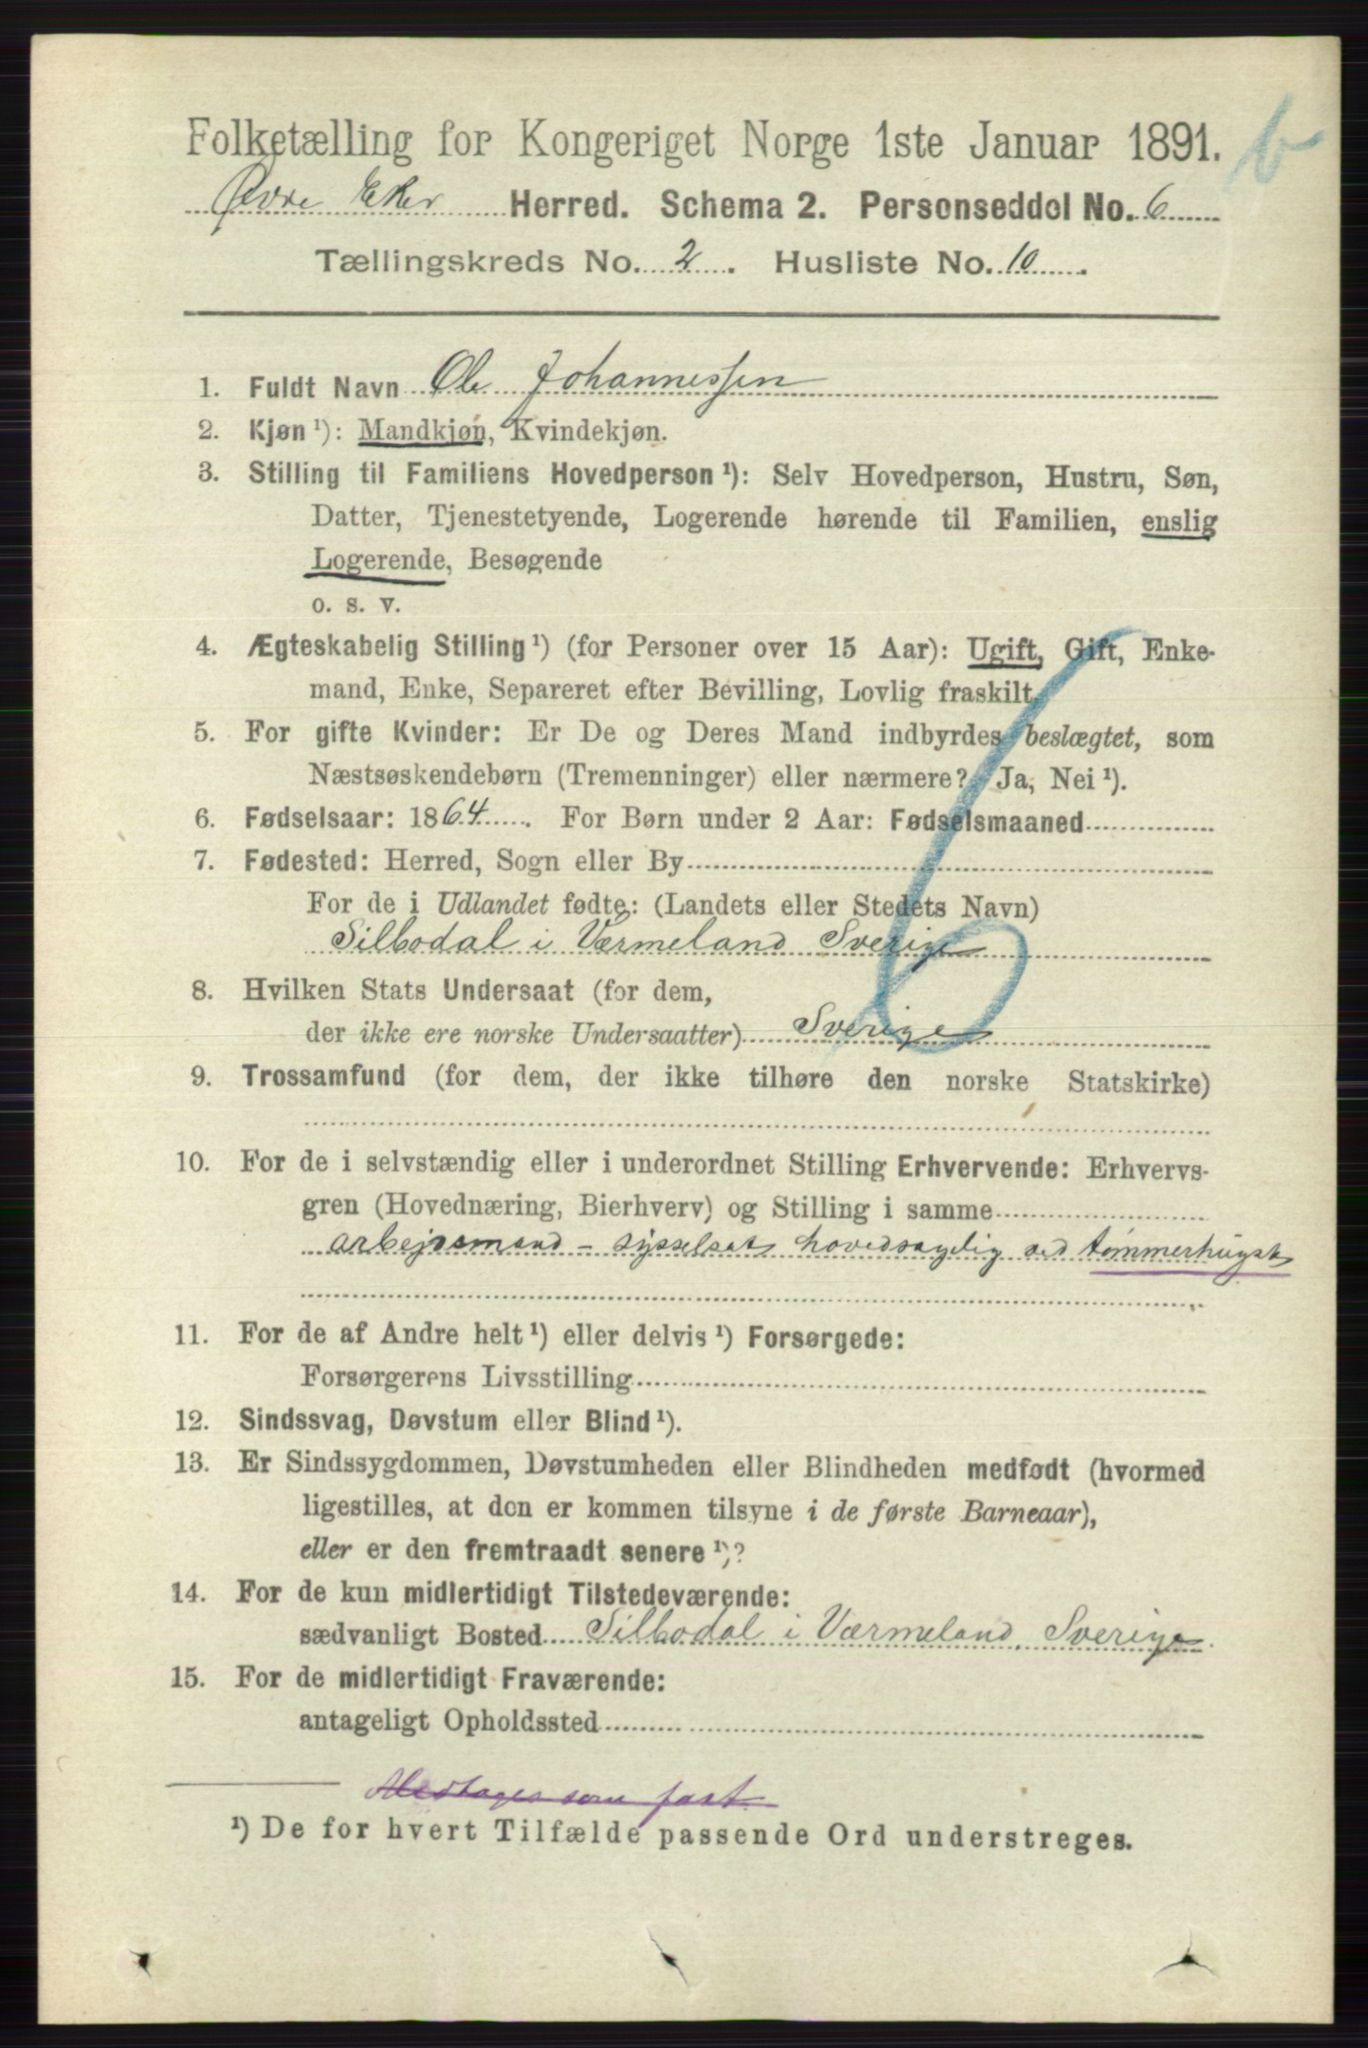 Folketælling for Kongeriget Norge 1ste Januar 1891.
b
Øvre Eker Herred. Schema 2. Personseddel No. 6
Tællingskreds No. 2. Husliste No. 10.
1. Fuldt Navn Ole Johannessen
2. Kjøn ¹): Mandkjøn, Kvindekjøn.
3. Stilling til Familiens Hovedperson ¹): Selv Hovedperson, Hustru, Søn,
Datter, Tjenestetyende, Logerende hørende til Familien, enslig
Logerende, Besøgende
o. s. v.
4. Ægteskabelig Stilling ¹) (for Personer over 15 Aar): Ugift, Gift, Enke-
mand, Enke, Separeret efter Bevilling, Lovlig fraskilt.
5. For gifte Kvinder: Er De og Deres Mand indbyrdes beslægtet, som
Næstsøskendebørn (Tremenninger) eller nærmere? Ja, Nei ¹).
6. Fødselsaar: 1864. For Børn under 2 Aar: Fødselsmaaned
7. Fødested: Herred, Sogn eller By
For de i Udlandet fødte: (Landets eller Stedets Navn)
Silbodal i Værmeland Sverige
8. Hvilken Stats Undersaat (for dem,
der ikke ere norske Undersaatter) Sverige
9. Trossamfund (for dem, der ikke tilhøre den norske Statskirke)
10. For de i selvstændig eller i underordnet Stilling Erhvervende: Erhvervs-
gren (Hovednæring, Bierhverv) og Stilling i samme
arbejdsmand – sysselsat hovedsagelig ved tømmerhugst
11. For de af Andre helt ¹) eller delvis ¹) Forsørgede:
Forsørgerens Livsstilling
12. Sindssvag, Døvstum eller Blind ¹).
13. Er Sindssygdommen, Døvstumheden eller Blindheden medfødt (hvormed
ligestilles, at den er kommen tilsyne i de første Barneaar),
eller er den fremtraadt senere ¹)?
14. For de kun midlertidigt Tilstedeværende:
sædvanligt Bosted Silbodal i Værmeland, Sverige
15. For de midlertidigt Fraværende:
antageligt Opholdssted
Medtages som fast
¹) De for hvert Tilfælde passende Ord understreges.